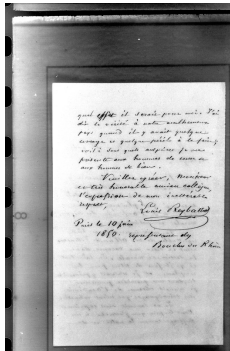 quel effet il serait pour moi. J'ai
dit la vérité à notre malheureux
pays quand il y avait quelque
courage et quelque péril à le faire,
voilà sous quels auspices je me
présente aux hommes de cœur et
aux hommes de bien.
Veuillez agréer, Monsieur
et très honorable ancien collègue,
l'expression de mon
respect,
Louis Reybaud
Paris le 10 juin
1850. représentant des
Bouches du Rhône